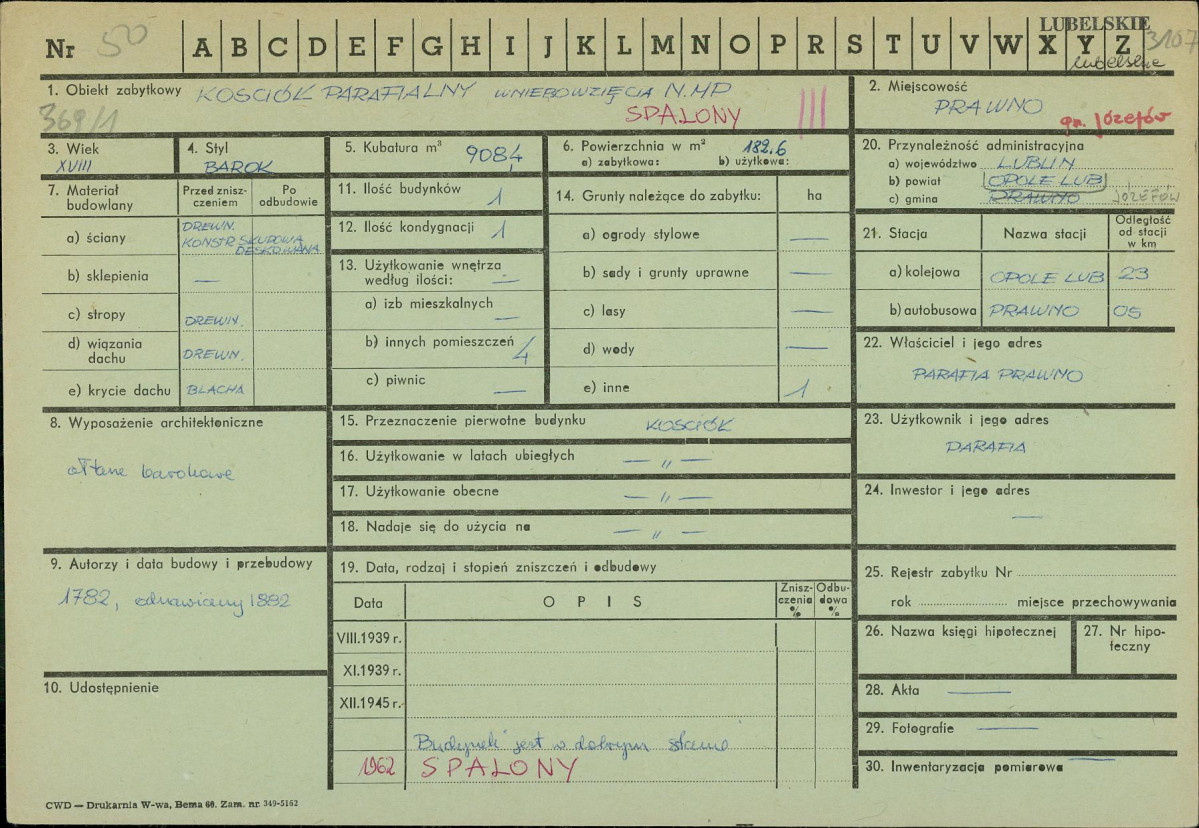 LUBELSKIE
Nr 50 A B C D E F G H I J K L M N O P R S T U V W X Y Z 3107
lubelskie
1. Obiekt zabytkowy KOSCIÓŁ PARAFIALNY WNIEBOWZIĘCIA N.MP
SPALONY III
369/1
2. Miejscowość
PRAWNO gm. Józefów
3. Wiek
XVIII
4. Styl
BAROK
5. Kubatura m³ 9084
6. Powierzchnia w m² 182.6
a) zabytkowa: b) użytkowa:
20. Przynależność administracyjna
a) województwo LUBLIN
b) powiat OPOLE LUB
c) gmina PRAWNO JÓZEFÓW
7. Materiał budowlany
Przed zniszczeniem
Po odbudowie
a) ściany DREWN. KONSTR. SŁUPOWA DESKOWANA
b) sklepienia —
c) stropy DREWN.
d) wiązania dachu DREWN.
e) krycie dachu BLACHA
11. Ilość budynków 1
12. Ilość kondygnacji 1
13. Użytkowanie wnętrza
według ilości: —
a) izb mieszkalnych —
b) innych pomieszczeń 4
c) piwnic —
14. Grunty należące do zabytku: ha
a) ogrody stylowe —
b) sady i grunty uprawne —
c) lasy —
d) wody —
e) inne 1
21. Stacja
Nazwa stacji
Odległość od stacji w km
a) kolejowa OPOLE LUB 23
b) autobusowa PRAWNO 05
22. Właściciel i jego adres
PARAFIA PRAWNO
8. Wyposażenie architektoniczne
ołtarze barokowe
15. Przeznaczenie pierwotne budynku KOSCIÓŁ
16. Użytkowanie w latach ubiegłych — „ —
17. Użytkowanie obecne — „ —
18. Nadaje się do użycia na — „ —
23. Użytkownik i jego adres
PARAFIA
24. Inwestor i jego adres
—
9. Autorzy i data budowy i przebudowy
1782, odnawiany 1882
10. Udostępnienie
19. Data, rodzaj i stopień zniszczeń i odbudowy
Data
OPIS
Zniszczenia %
Odbudowa %
VIII.1939 r.
XI.1939 r.
XII.1945 r.
Budynek jest w dobrym stanie
1962 SPALONY
25. Rejestr zabytku Nr
rok miejsce przechowywania
26. Nazwa księgi hipotecznej
27. Nr hipoteczny
28. Akta —
29. Fotografie —
30. Inwentaryzacja pomiarowa —
CWD — Drukarnia W-wa, Bema 60. Zam. nr. 349-5162